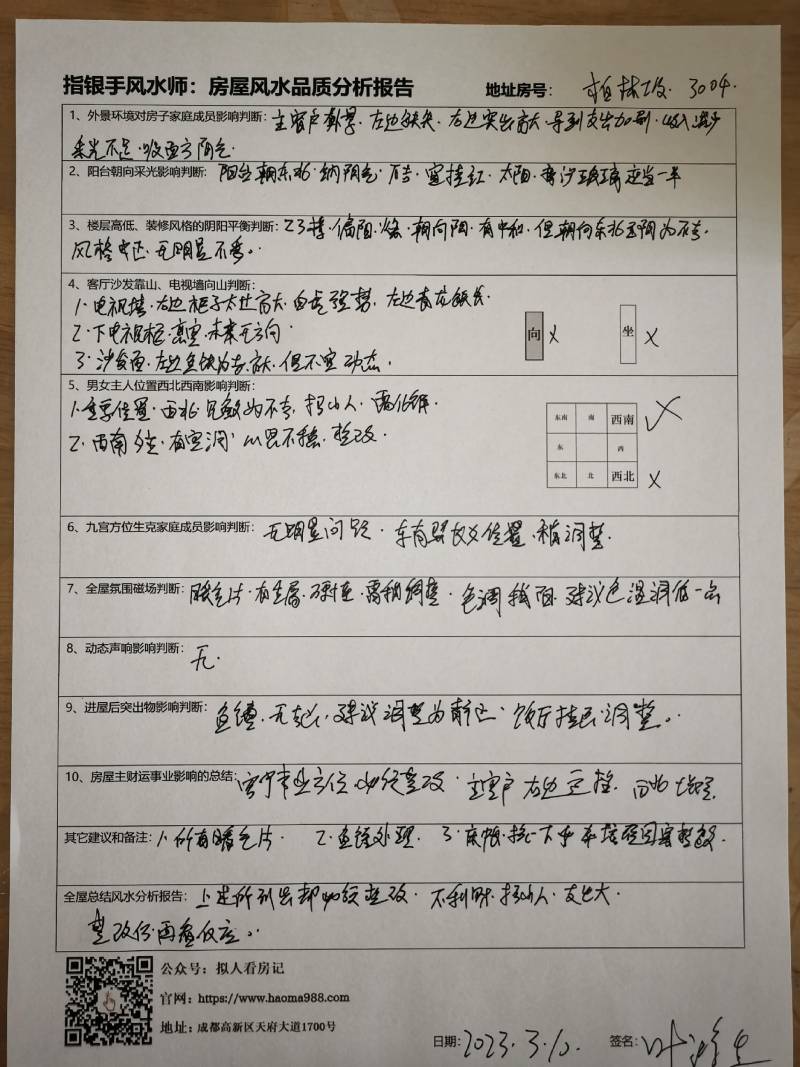 指银手风水师：房屋风水品质分析报告 地址房号： 3004.
1、外景环境对房子家庭成员影响判断：主窗户外景．左边缺失．右边突出高大．导致支出加剧．收入减少
采光不足．
2、阳台朝向采光影响判断：阳台朝东北．纳阴气．宜挂红．太阳．一半
3、楼层高低、装修风格的阴阳平衡判断：23楼．偏阳．燥．朝向阴．有中和．但朝向东北为不吉．
风格无明显不吉。
4、客厅沙发靠山、电视墙向山判断：
1．电视墙．右边柜子太过高大．白虎强势．左边青龙缺失
2．下电视柜悬空．未来无方向
3．沙发面．左边鱼缸为吉．高大．但不宜动态．
向 × 坐 ×
5、男女主人位置西北西南影响判断：
1．位置．西北为不吉，招小人，需化解．
2．西南有空洞．整改．
东南 南 西南
东 西
东北 北 西北 ×
6、九宫方位生克家庭成员影响判断：无明显问题．位置．稍调整．
7、全屋氛围磁场判断：暖气片．有金属．需稍调整．色调我阴．建议色温调低一点
8、动态声响影响判断：无．
9、进屋后突出物影响判断：鱼缸．建议调整为静态．饭厅挂画调整。
10、房屋主财运事业影响的总结：必须整改．主窗户右边
其它建议和备注：1．所有暖气片． 2．鱼缸处理． 3．
全屋总结风水分析报告：上述所列出都必须整改．不利财．招小人．支出大．
整改后再看效应。
公众号：拟人看房记
官网：https://www.haoma988.com
地址：成都高新区天府大道1700号
日期：2023.3.12. 签名：